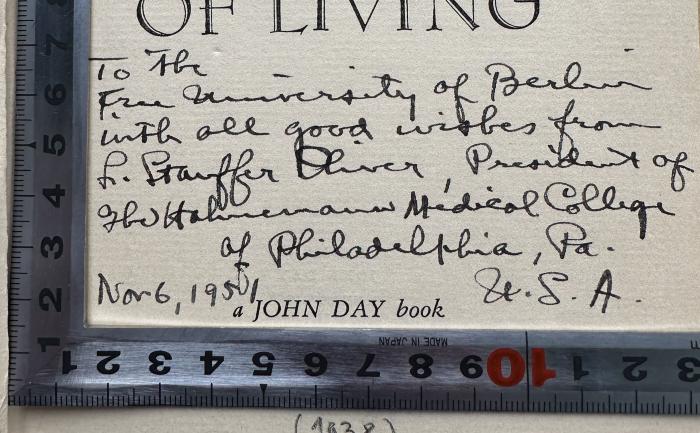 OF LIVING
To the
Free University of Berlin
with all good wishes from
L. Stauffer Oliver, President of
The Hahnemann Medical College
of Philadelphia, Pa.
Nov 6, 1951 U.S.A.
a JOHN DAY book
7 6 5 4 3 2 1
1 2 3 4 5 6 7 8 9 10 1 2 3
MADE IN JAPAN
(1938)